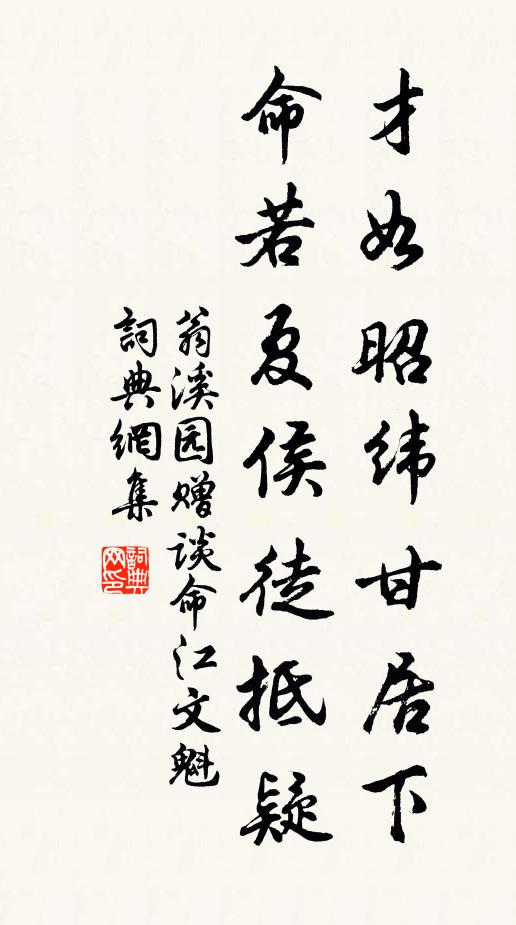 才如昭纬甘居下
命若夏侯徒抵疑
翁溪园赠谈命江文魁
詞典網集
詞典网印